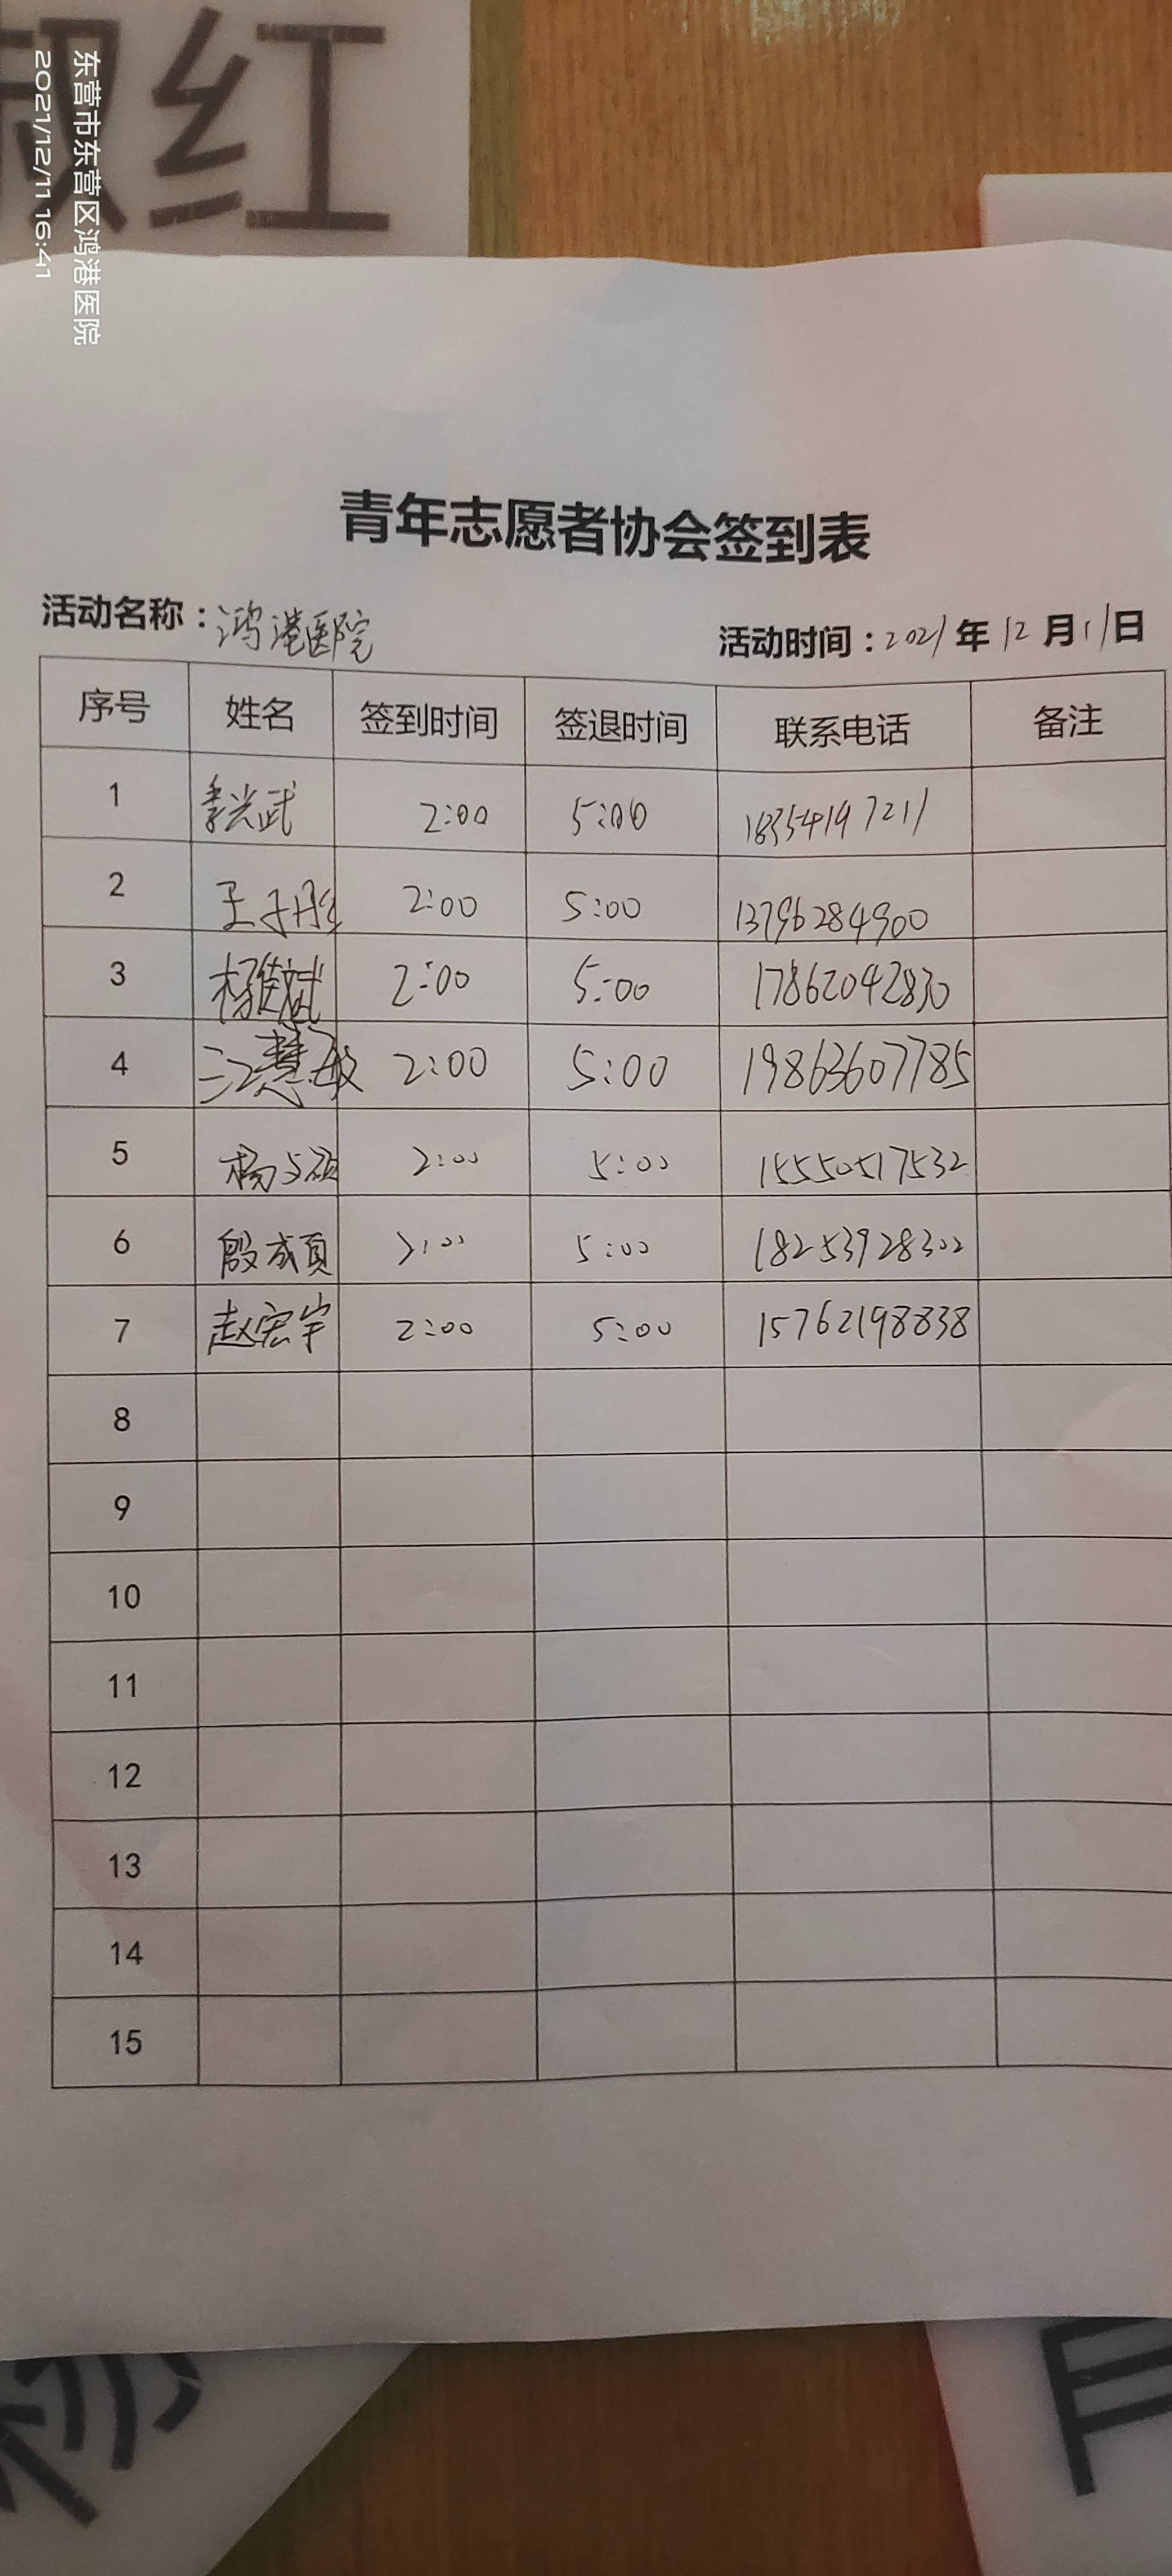 淑红
东营市东营区鸿港医院
2021/12/11 16:41
青年志愿者协会签到表
活动名称：鸿港医院 活动时间：2021年12月11日
序号 姓名 签到时间 签退时间 联系电话 备注
1 2:00 5:00 18354197211
2 王子彤 2:00 5:00 13796284900
3 杨健斌 2:00 5:00 17862042830
4 江慧敏 2:00 5:00 19863607785
5 杨 2:00 5:00 15550517532
6 殷成页 2:00 5:00 18253928302
7 赵宏宇 2:00 5:00 15762198838
8
9
10
11
12
13
14
15